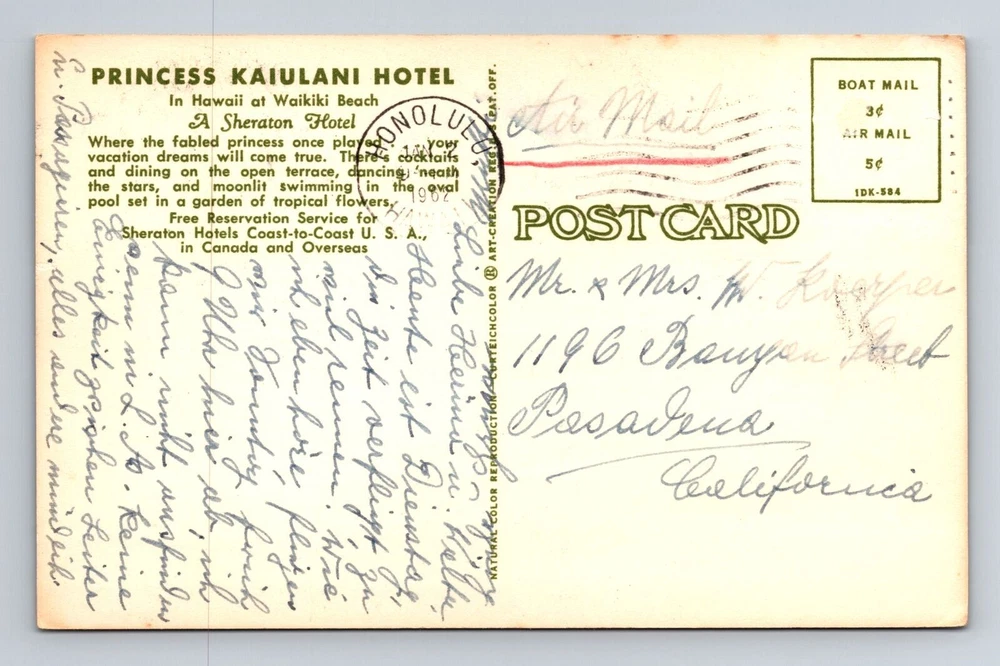 PRINCESS KAIULANI HOTEL
In Hawaii at Waikiki Beach
A Sheraton Hotel
Where the fabled princess once your
vacation dreams will come true. cocktails
and dining on the open terrace, dancing neath
the stars, and moonlit swimming in the oval
pool set in a garden of tropical flowers.
Free Reservation Service for
Sheraton Hotels Coast-to-Coast U. S. A.,
in Canada and Overseas
HONOLULU,
1962
NATURAL COLOR REPRODUCTION CURTEICHCOLOR ® ART-CREATION REG. U.S. PAT. OFF.
Air Mail
BOAT MAIL
3¢
AIR MAIL
5¢
1DK-584
POST CARD
Mr. & Mrs. W.
1196 Banyan Street
Pasadena
California
Liebe u. Walter
Heute ist Dienstag,
die Zeit verfliegt zu
viel rennen. Wie
ich eben höre, fliegen
wir Sonntag früh
9 Uhr hier ab, ich
kann nicht ausfinden
wenn in L.A. Keine
Einigkeit zwischen Leiter
u. Passagieren, alles andere mündlich.